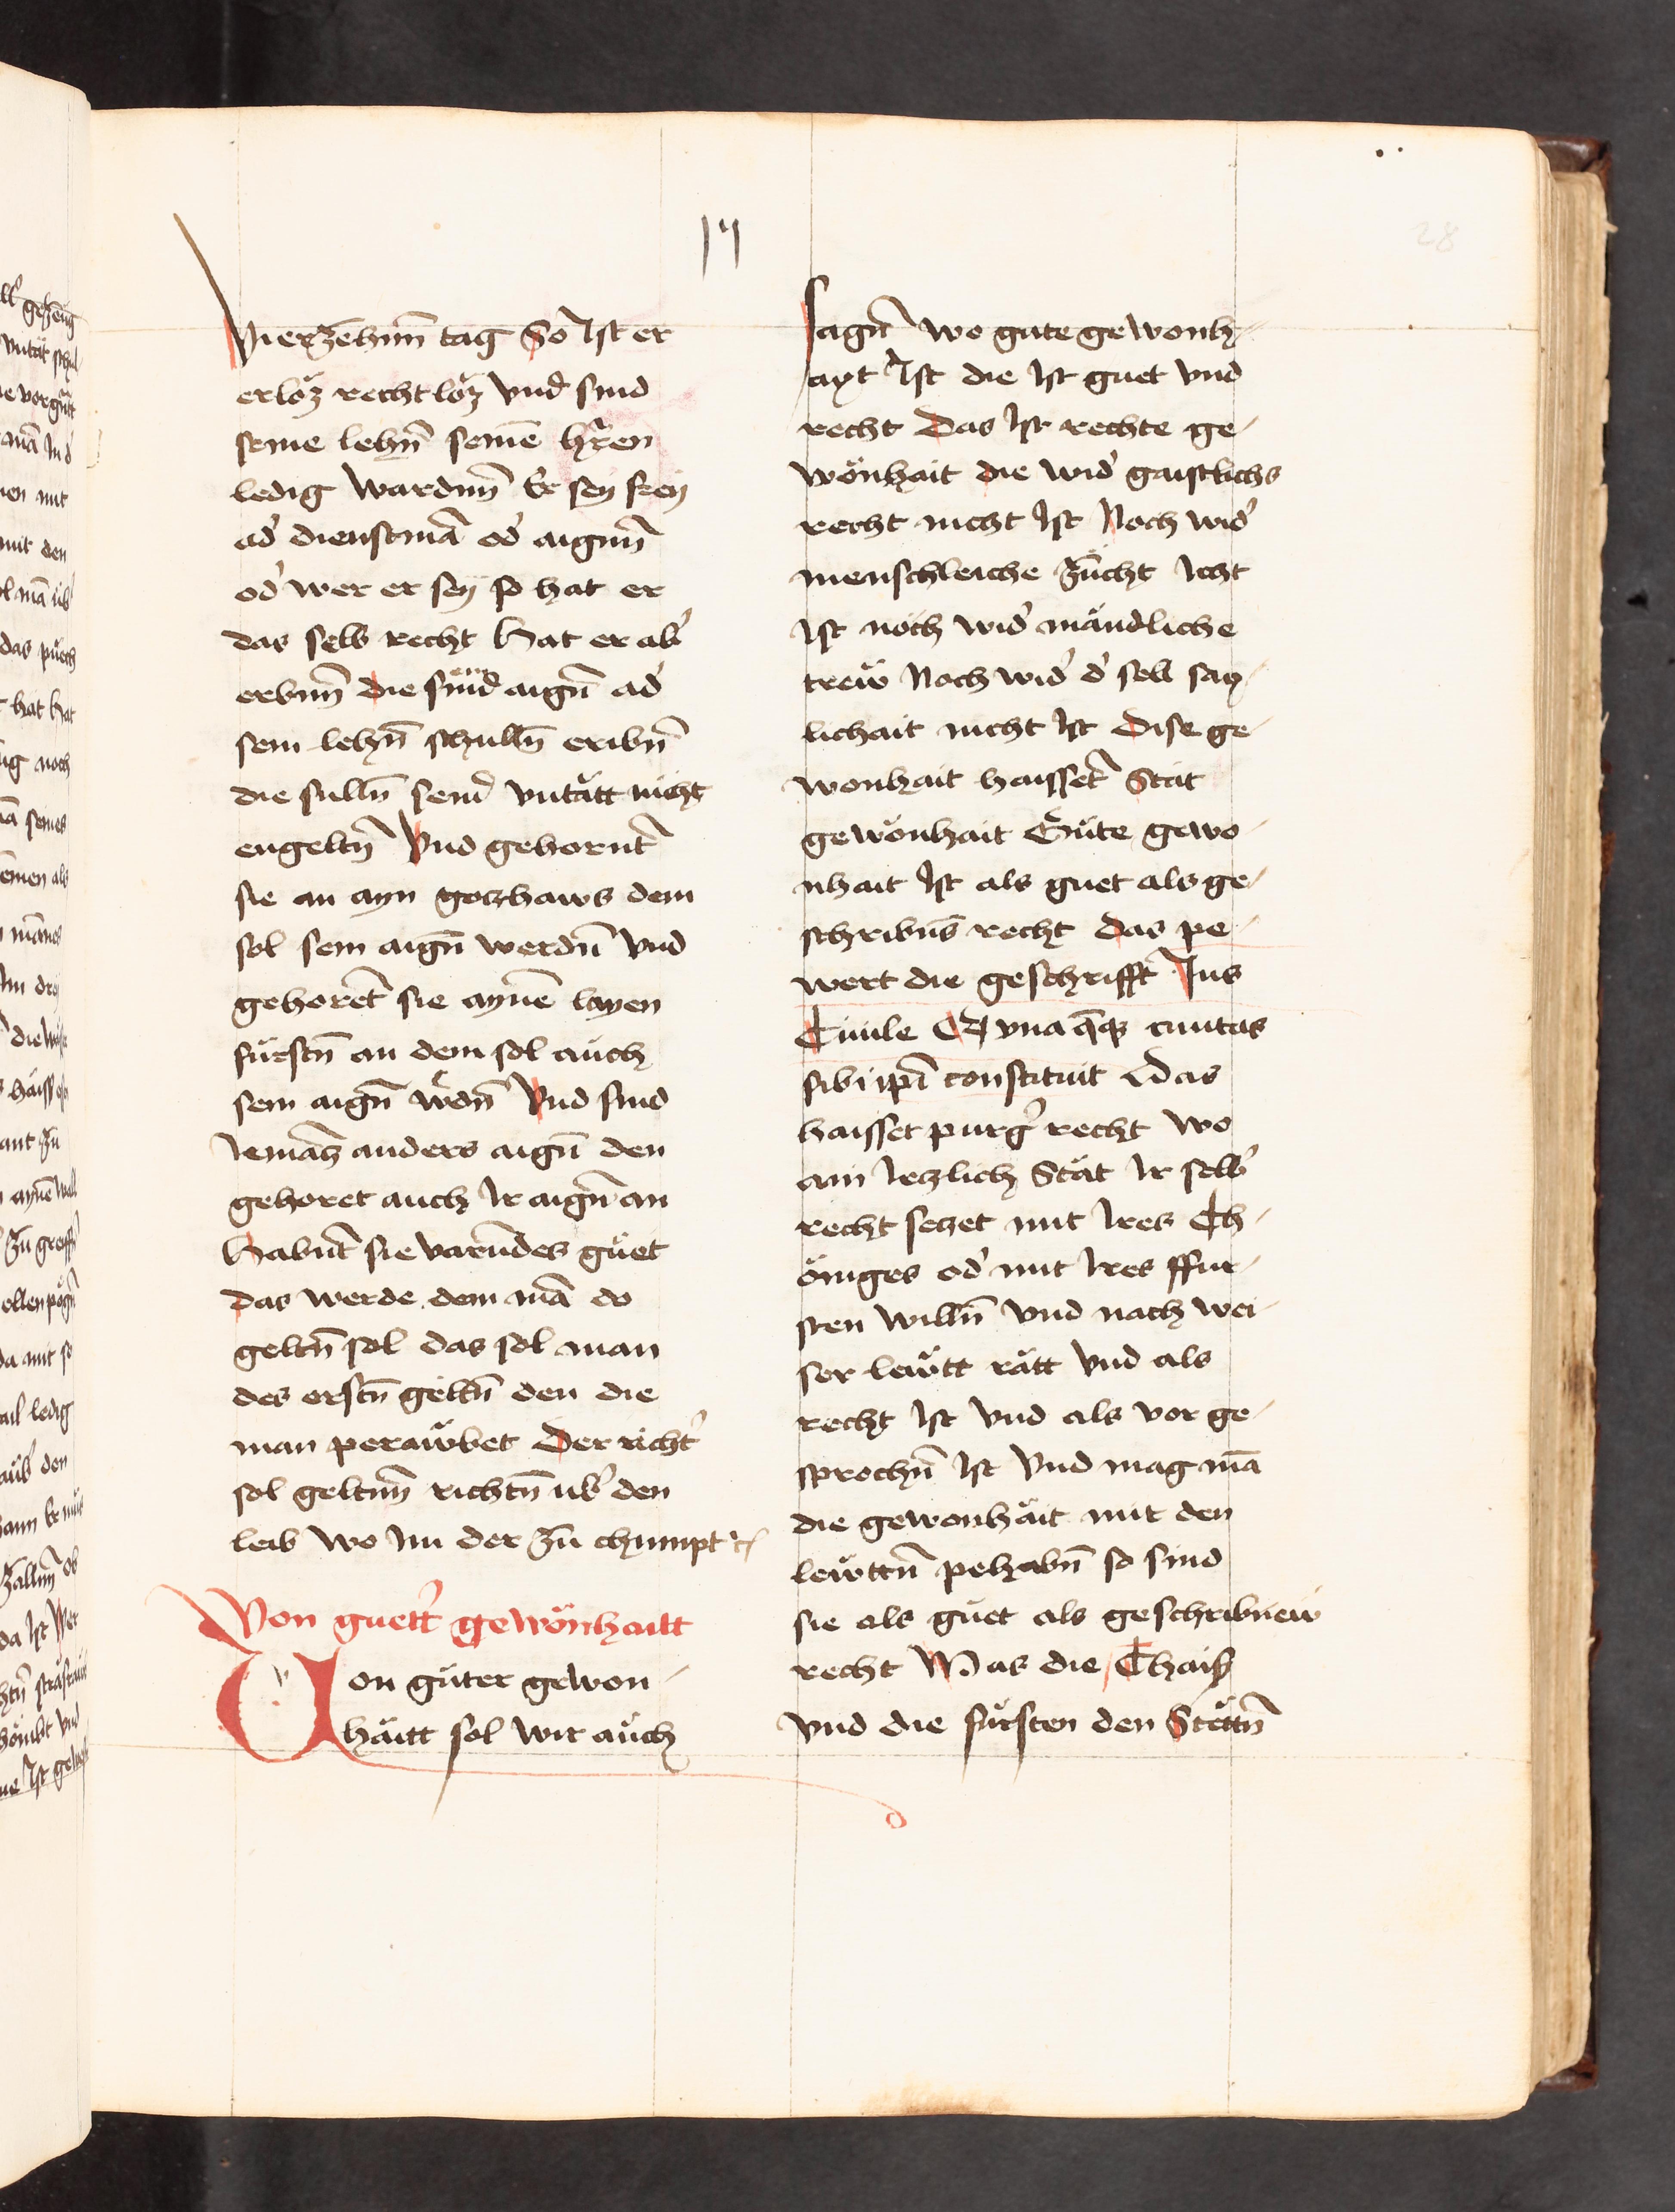 17
28
Vierzehinn̄ tag So Ist er
erlöz recht löz vnd sind
seine lehn̄ seinē hr̄en
ledig wardinn̄ Er sey frey
ad' dienstmā od' aiginn̄
od' wer er sey so hat er
das selb recht Hat er ab'
erbinn̄ die seind aign̄ ad'
sein lehn̄ schulln̄ eribn̄
die sulln̄ seind vntätt nicht
engeltn̄ Vnd gehornt̄
sie an ayn gotzhaws dem
sol sein aign̄ werdn̄ vnd
gehoret̄ sie aynē layen
fürstn̄ an dem sol auch
sein aign̄ w'dn̄ Vnd sind
Iemāz anders aign̄ den
gehoret auch Ir aign̄ an
Habnt̄ sie varn̄des güet
das werde dem mā do
geltn̄ sol das sol man
des erstn̄ geltn̄ den die
man perawbet Der richt'
sol geltinn̄ richtn̄ üb' den
leib wo Im der zu chumpt rc
Von guett' gewönhaitt
Von güter gewon
häitt sol wir auch
sagn̄ wo gute gewonh
ayt Ist die Ist guet vnd
recht Das Ist rechte ge
wönhait die wid' gaistlichs
recht nicht Ist Noch wid'
menschleiche zücht Icht
Ist noch wid' mändliche
trew Noch wid' d' sell säy
lichait nicht Ist Dise ge
wonhait haisset̄ Stät
gewönhait Güte gewo
nhait Ist als guet als ge
schribns̄ recht das pe
wert die geschrifft̄ Ius
Ciuile Est vna q̄q3 ciuitas
sibi ip̄i constituit Das
haisset purg' recht wo
ain Ieczlich Stät Ir selb'
recht seczet mit Ires Ch
öniges od' mit Ires ffur
sten willn̄ vnd nach wei
ser lewtt rätt vnd als
recht Ist vnd als vor ge
sprochn̄ Ist Vnd mag mā
die gewonhäit mit den
lewttn̄ pehabn̄ so sind
sie als güet als geschribnew
recht Was die Chais'
vnd die fürsten den Stettn̄